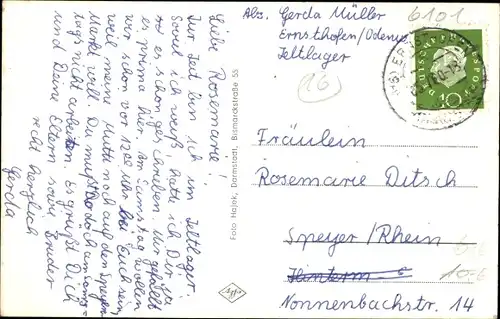 Liebe Rosemarie!
Zur Zeit bin ich im Zeltlager.
Soviel ich weiß, hatte ich Dir ja
es schon geschrieben. Mir gefällt
es prima hier. Am Samstag wollen
wir schon vor 12 Uhr bei Euch sein,
weil meine Mutti noch auf den Speyerer
Markt will. Du mußt doch samstags
nicht arbeiten. Es grüßt Dich
und Deine Eltern sowie Bruder
recht herzlich
Gerda
Foto Hajek, Darmstadt, Bismarckstraße 55
Abs. Gerda Müller
Ernsthofen/Odenw
Zeltlager
6101
16
DEUTSCHE BUNDESPOST
10
Fräulein
Rosemarie Ditsch
Speyer/Rhein
Nonnenbachstr. 14